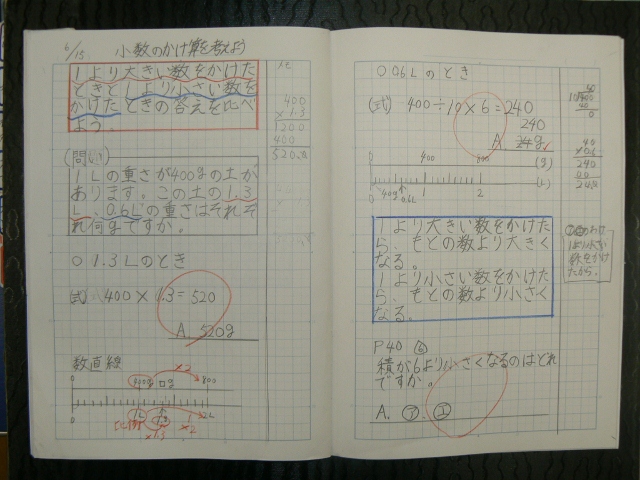 6/15 小数のかけ算を考えよう
1より大きい数をかけた
ときと1より小さい数を
かけたときの答えを比べ
よう。
メモ
400
×1.3
1200
400
520.0
(問い)
1Lの重さが400gの土が
あります。この土の1.3
L、0.6Lの重さはそれぞ
れ何gですか。
○1.3Lのとき
式 400×1.3=520
A 520g
数直線
×2
0 400g □g 800
0 1L 2L
×1.3 ×2
○0.6Lのとき
(式) 400÷10×6=240
240
A
40
10 400
40
0
40
×0.6
240
00
0 400 800 (g)
0 40g 0.6L 1 2 (L)
1より大きい数をかけた
ら、もとの数より大きく
なる。
1より小さい数をかけた
ら、もとの数より小さく
なる。
1より小さい
数をかけ
たから。
P40 ⑥
積が6より小さくなるのはどれ
ですか。
A. ㋐ ㋓